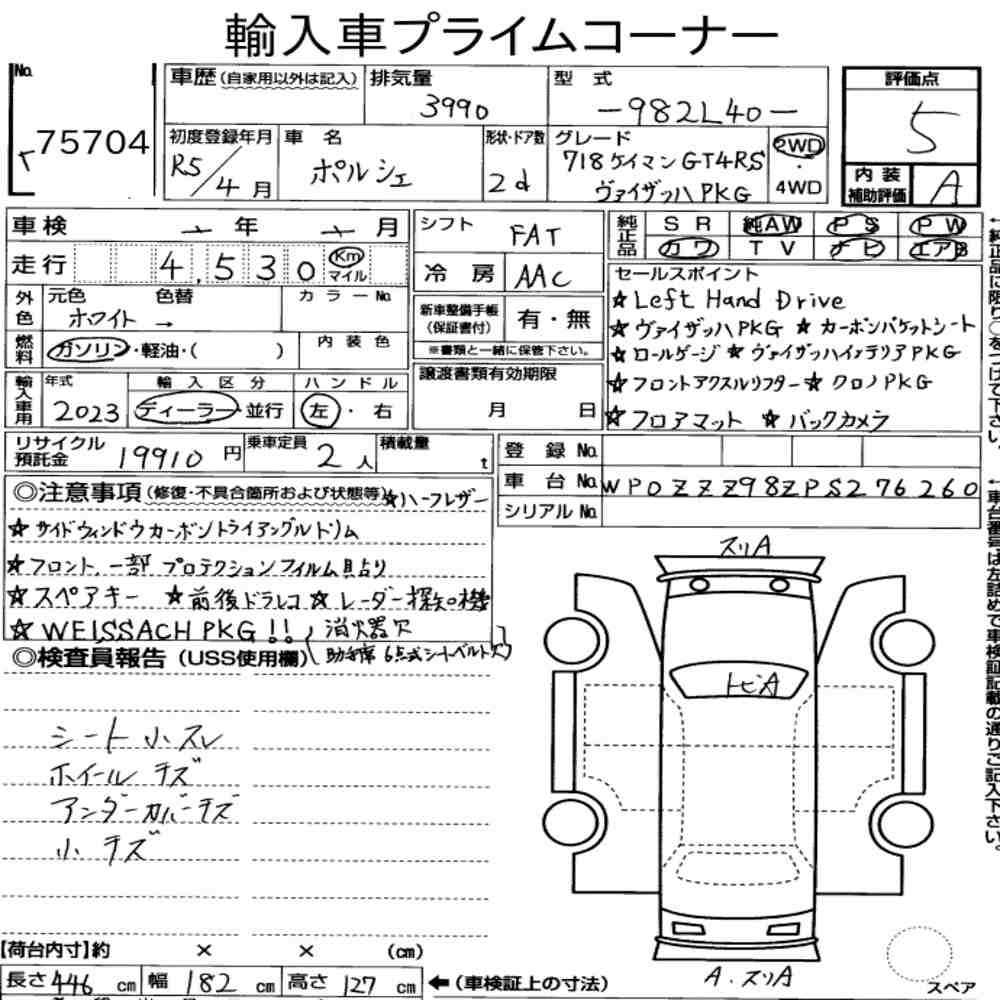 輸入車プライムコーナー
No. 75704
車歴(自家用以外は記入) 排気量 3990 型式 -982L40- 評価点 5
初度登録年月 R5/4月 車名 ポルシェ 形状・ドア数 2d グレード 718ケイマンGT4RS ヴァイザッハPKG 2WD・4WD 内装補助評価 A
車検 年 月 シフト FAT 純正品 SR 純AW PS PW
走行 4,530 Km マイル 冷房 AAC カワ TV ナビ エアB
外色 元色 ホワイト 色替 → カラーNo.
新車整備手帳(保証書付) 有・無
※書類と一緒に保管下さい。
燃料 ガソリン・軽油・( ) 内装色
輸入車用 年式 2023 輸入区分 ディーラー・並行 ハンドル 左・右
譲渡書類有効期限 月 日
セールスポイント
☆Left Hand Drive
☆ヴァイザッハPKG ☆カーボンバケットシート
☆ロールゲージ☆ヴァイザッハインテリアPKG
☆フロントアクスルリフター☆クロノPKG
☆フロアマット ☆バックカメラ
リサイクル預託金 19910円 乗車定員 2人 積載量 t
登録No.
車台No. WP0ZZZ98ZPS276260
シリアルNo.
◎注意事項(修復・不具合箇所および状態等)☆ハーフレザー
☆サイドウィンドウカーボントライアングルトリム
☆フロント.一部プロテクションフィルム貼り
☆スペアキー ☆前後ドラレコ☆レーダー探知機
☆WEISSACH PKG!! 消火器欠
◎検査員報告(USS使用欄) 助手席6点式シートベルト欠
シート小スレ
ホイールキズ
アンダーカバーキズ
小キズ
スリA
トビA
A.スリA
スペア
【荷台内寸】約 × × (cm)
長さ446cm 幅182cm 高さ127cm ←(車検証上の寸法)
←純正品に限り○をつけて下さい。
←車台番号は左詰めで車検証記載の通りご記入下さい。